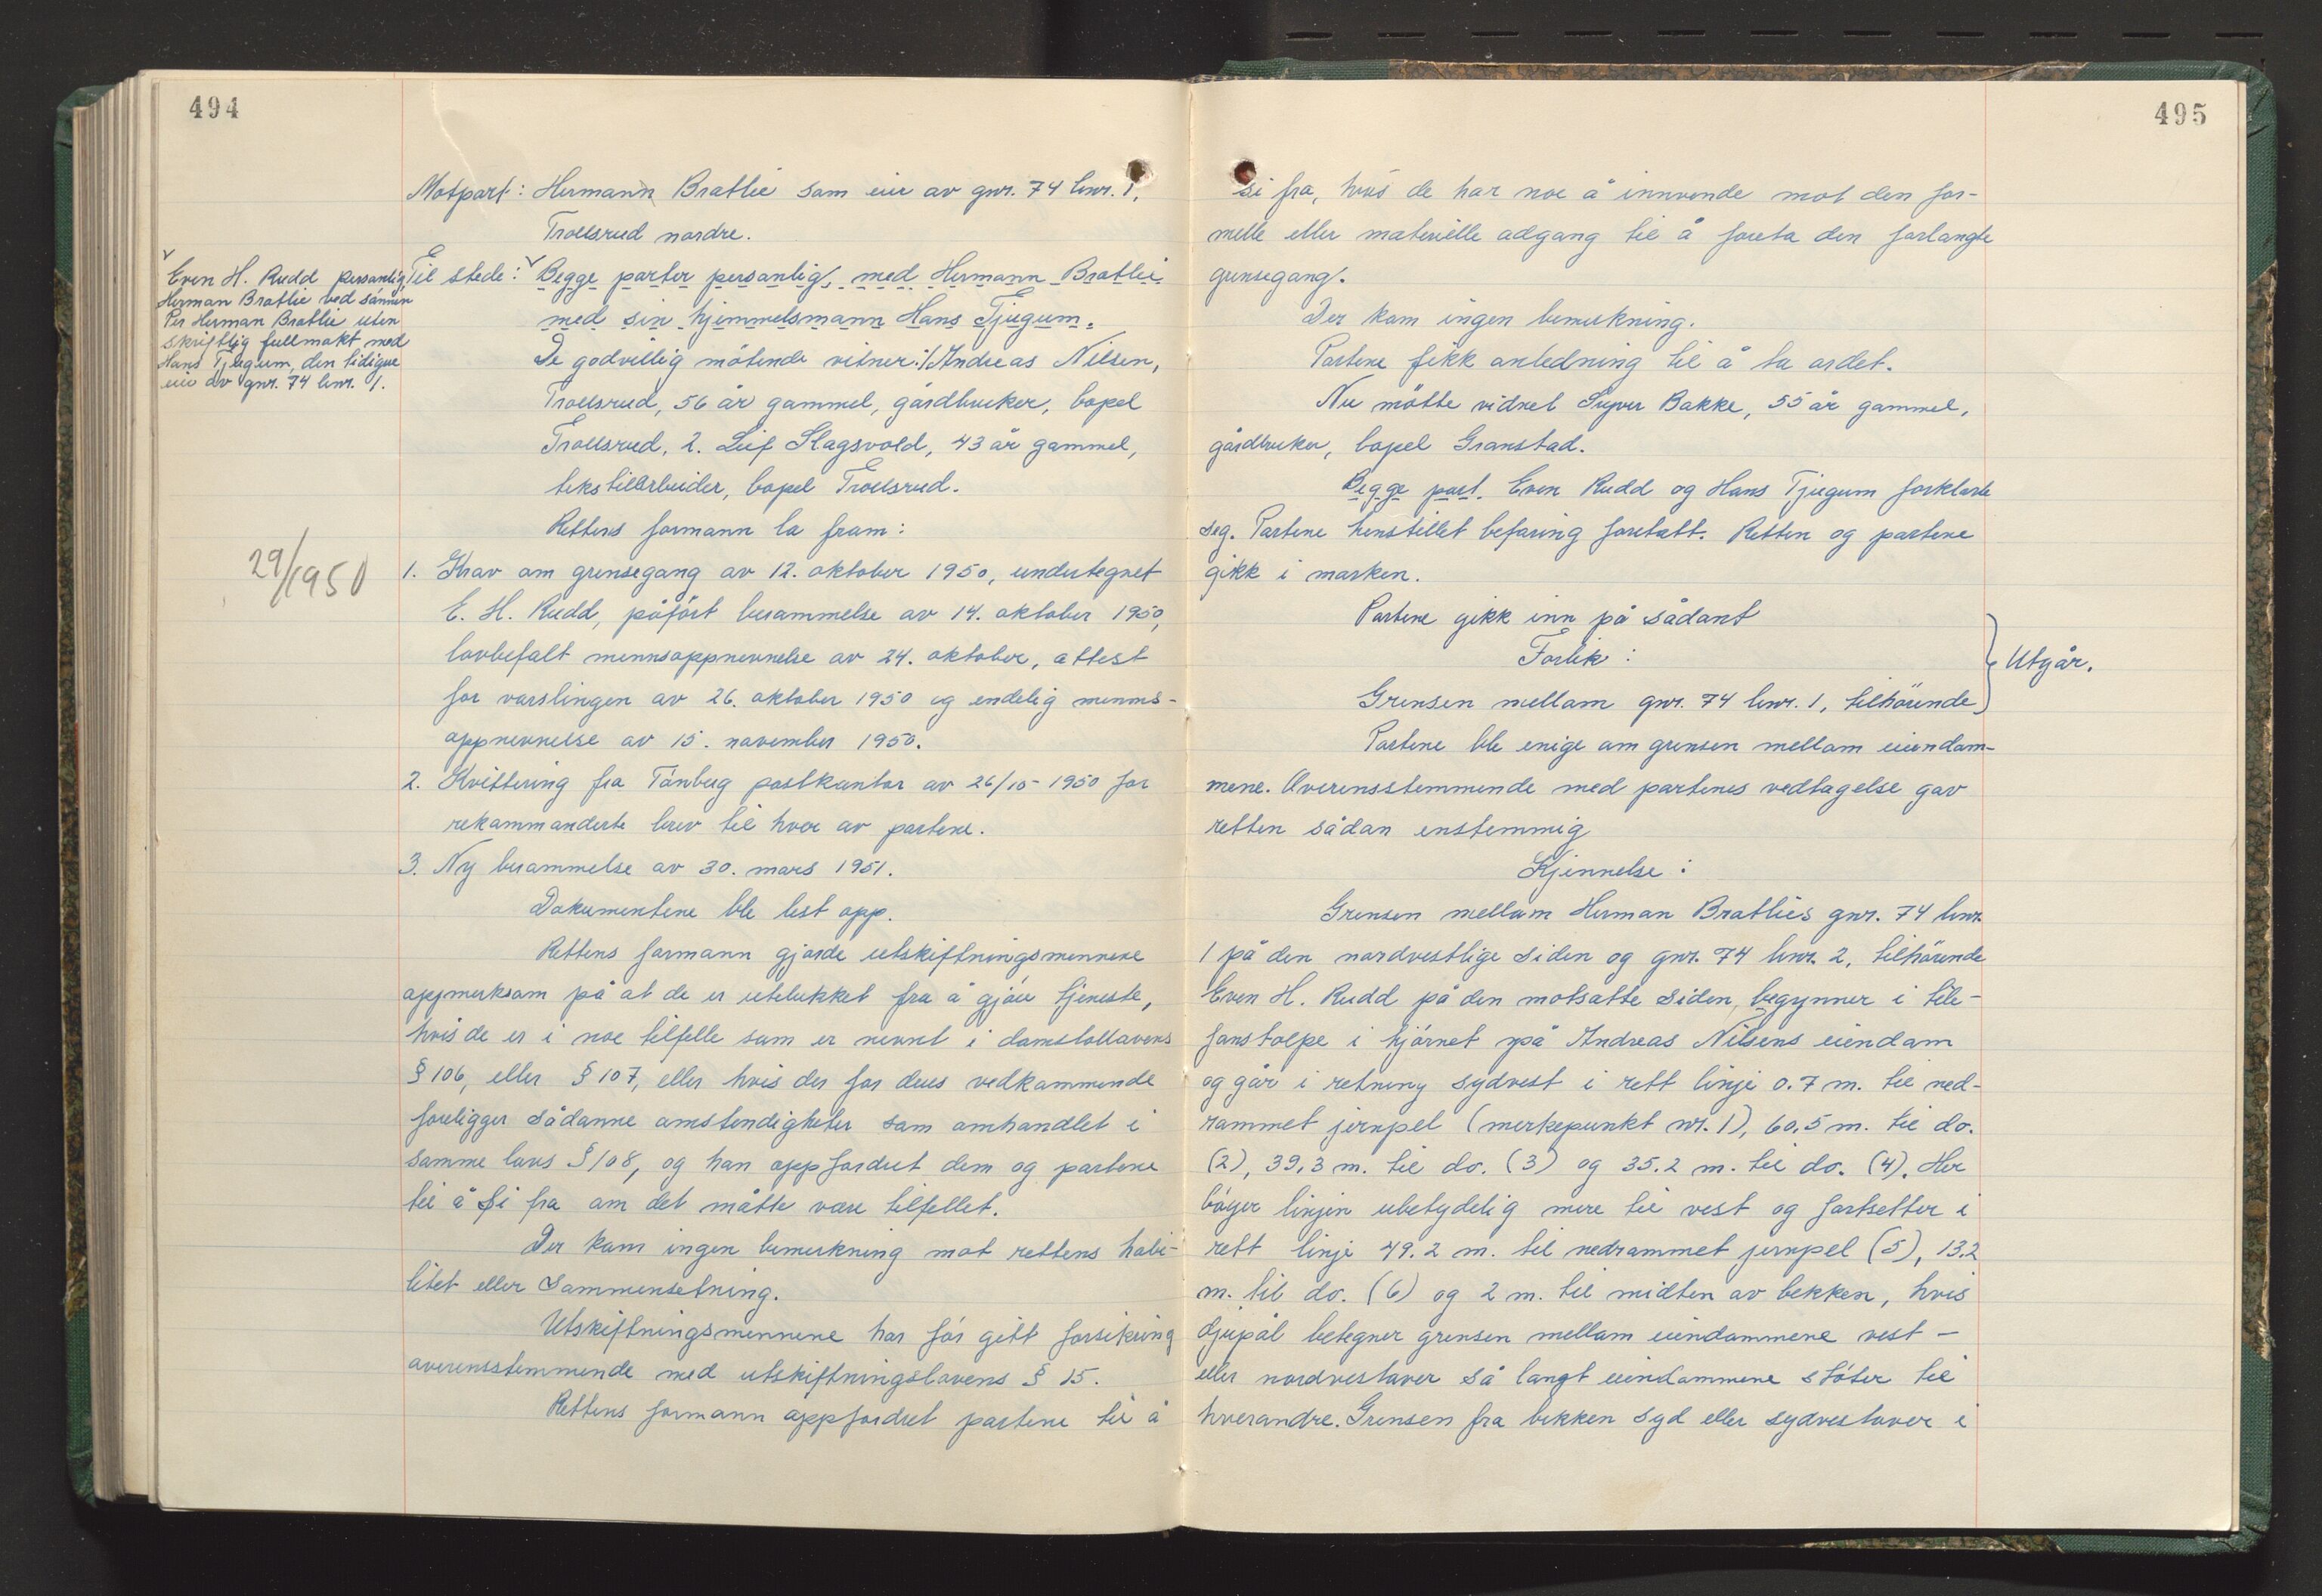 494
Motpart: Hermann Bratlie som eier av gnr. 74 bnr. 1,
Trollsrud nordre.
Til stede: Begge parter personlig, med Hermann Bratlie
med sin hjemmelsmann Hans Tjugum.
Even H. Rudd personlig
Herman Bratlie ved sønnen
Per Herman Bratlie uten
skriftlig fullmakt med
Hans Tjugum, den tidigere
eier av gnr. 74 bnr. 1.
De godvillig møtende vitner: 1. Andreas Nilsen,
Trollsrud, 56 år gammel, gårdbruker, bopel
Trollsrud, 2. Leif Slagsvold, 43 år gammel,
tekstilarbeider, bopel Trollsrud.
Rettens formann la fram:
29/1950
1. Krav om grensegang av 12. oktober 1950, undertegnet
E. H. Rudd, påført berammelse av 14. oktober 1950,
lovbefalt mennsoppnevnelse av 24. oktober, attest
for varslingen av 26. oktober 1950 og endelig menns-
oppnevnelse av 15. november 1950.
2. Kvittering fra Tønberg postkontor av 26/10-1950 for
rekommanderte brev til hver av partene.
3. Ny berammelse av 30. mars 1951.
Dokumentene ble lest opp.
Rettens formann gjorde utskiftningsmennene
oppmerksom på at de er utelukket fra å gjøre tjeneste,
hvis de er i noe tilfelle som er nevnt i domstollovens
§ 106, eller § 107, eller hvis der for deres vedkommende
foreligger sådanne omstendigheter som omhandlet i
samme lovs § 108, og han oppfordret dem og partene
til å si fra om det måtte være tilfellet.
Der kom ingen bemerkning mot rettens habi-
litet eller sammensetning.
Utskiftningsmennene har før gitt forsikring
overensstemmende med utskiftningslovens § 15.
Rettens formann oppfordret partene til å
495
si fra, hvis de har noe å innvende mot den for-
melle eller materielle adgang til å foreta den forlangte
grensegang.
Der kom ingen bemerkning.
Partene fikk anledning til å ta ordet.
Nu møtte vidnet Sigver Bakke, 55 år gammel,
gårdbruker, bopel Granstad.
Begge part. Even Rudd og Hans Tjugum forklarte
seg. Partene henstillet befaring foretatt. Retten og partene
gikk i marken.
Partene gikk inn på sådant
Forlik:
Grensen mellom gnr. 74 bnr. 1, tilhørende
} Utgår.
Partene ble enige om grensen mellom eiendom-
mene. Overensstemmende med partenes vedtagelse gav
retten sådan enstemmig
Kjennelse:
Grensen mellom Herman Bratlies gnr. 74 bnr.
1 på den nordvestlige siden og gnr. 74 bnr. 2, tilhørende
Even H. Rudd på den motsatte siden, begynner i tele-
fonstolpe i hjørnet på Andreas Nilsens eiendom
og går i retning sydvest i rett linje 0.7 m. til ned-
rammet jernpel (merkepunkt nr. 1), 60,5 m. til do.
(2), 39,3 m. til do. (3) og 35.2 m. til do. (4). Her
bøyer linjen ubetydelig mere til vest og fortsetter i
rett linje 49.2 m. til nedrammet jernpel (5), 13.2
m. til do. (6) og 2 m. til midten av bekken, hvis
djupål betegner grensen mellom eiendommene vest-
eller nordvestover så langt eiendommene støter til
hverandre. Grensen fra bekken syd eller sydvestover i